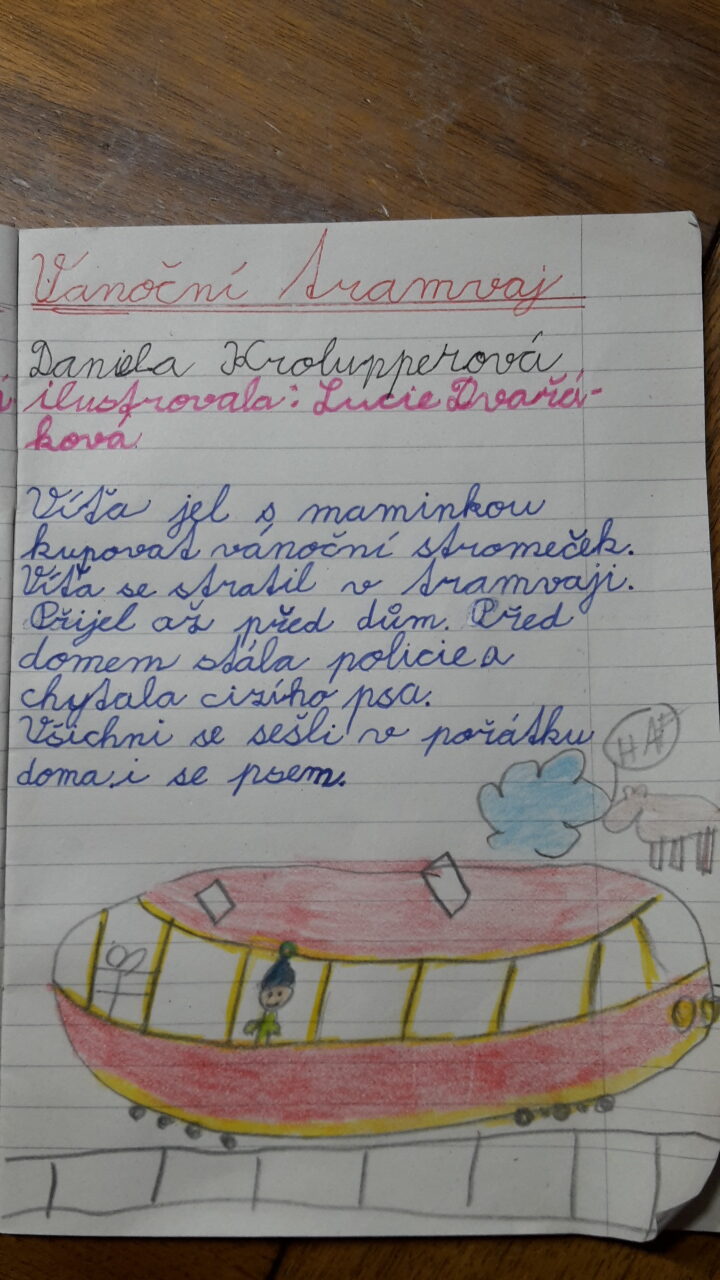 Vánoční tramvaj
Daniela Krolupperová
ilustrovala: Lucie Dvořá-
ková
Víťa jel s maminkou
kupovat vánoční stromeček.
Víťa se stratil v tramvaji.
Přijel až před dům. Před
domem stála policie a
chytala cizího psa.
Všichni se sešli v pořátku
doma i se psem.
HAF